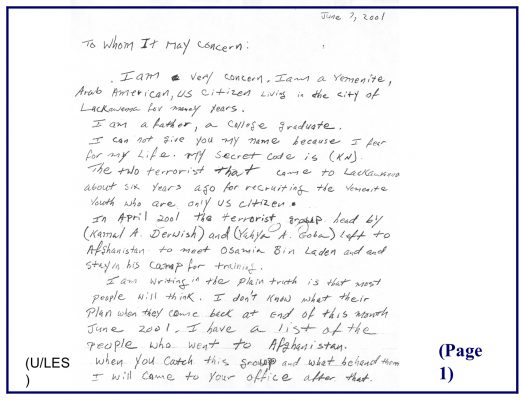 June ?, 2001
To Whom It May Concern:
. I am very concern. I am a Yemenite,
Arab American, US Citizen Living in the City of
Lackawanna for many years.
I am a father, a College graduate.
I can not give you my name because I fear
for my Life. My secret code is (KN).
The two terrorist that came to Lackawanna
about six years ago for recruiting the Yemenite
Youth who are only US citizen.
In April 2001 the terrorist group head by
(Kamal A. Derwish) and (Yahya A. Goba) left to
Afghanistan to meet Osamia Bin Laden and and
stay in his Camp for training.
I am writing in the plain truth is that most
people will think. I don't know what their
Plan when they come back at end of this month
June 2001. I have a list of the
people who went to Afghanistan.
When you catch this group and what behand them
I will come to your office after that.
(U/LES
)
(Page
1)